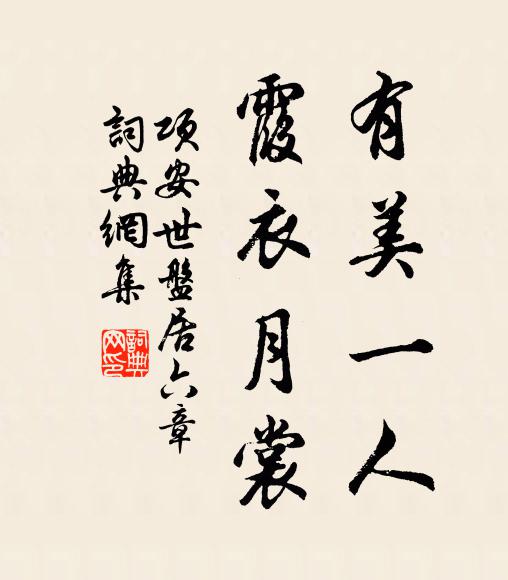 有美一人
霞衣月裳
項安世盤居六章
詞典網集
詞典
网印